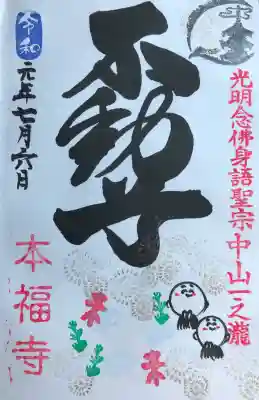 光明念佛身語聖宗中山一之瀧
不動尊
令和
元年七月六日
本福寺